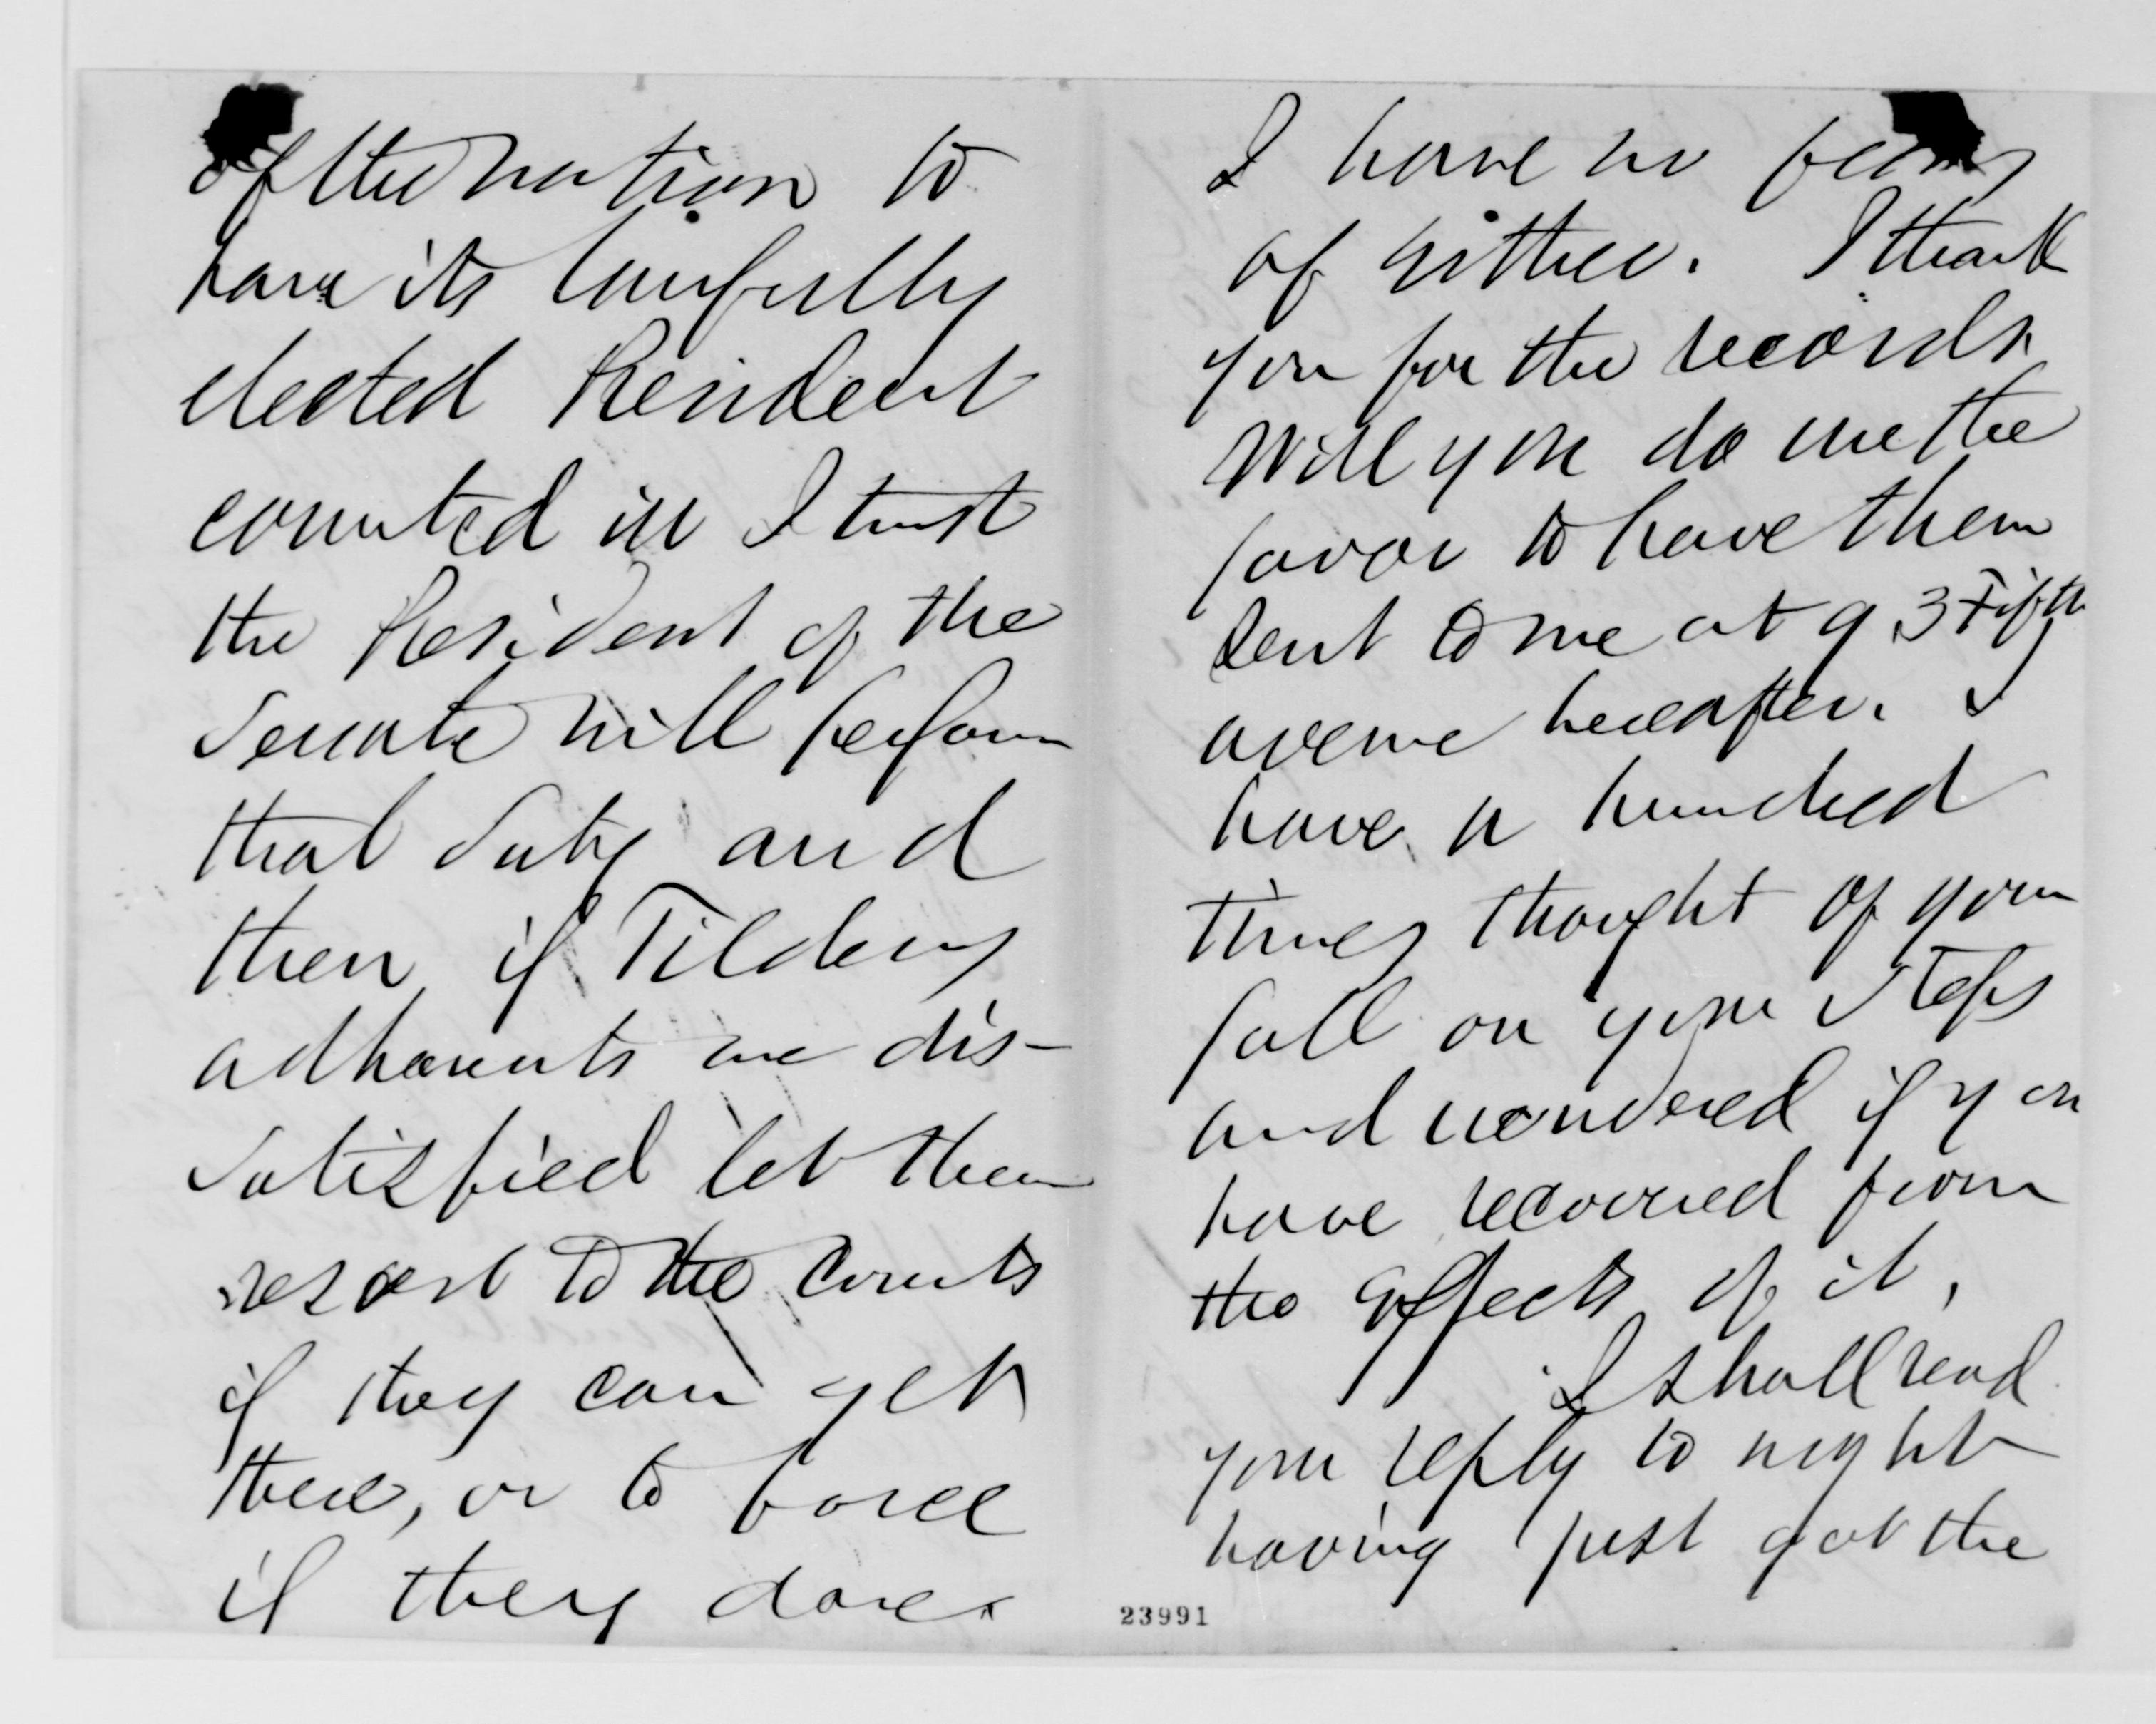 of the nation to
have its lawfully
elected President
counted in I trust
the President of the
Senate will perform
that duty and
then if Tildens
adherents are dis-
satisfied let them
resort to the courts
if they can get
there, or to force
if they dare.
I have no fears
of either. I thank
you for the records.
Will you do me the
favor to have them
sent to me at 93 Fifth
avenue hereafter. I
have a hundred
times thought of your
fall on your steps
and wondered if you
have recovered from
the effects of it,
I shall read
your reply to night
having just got the
23991